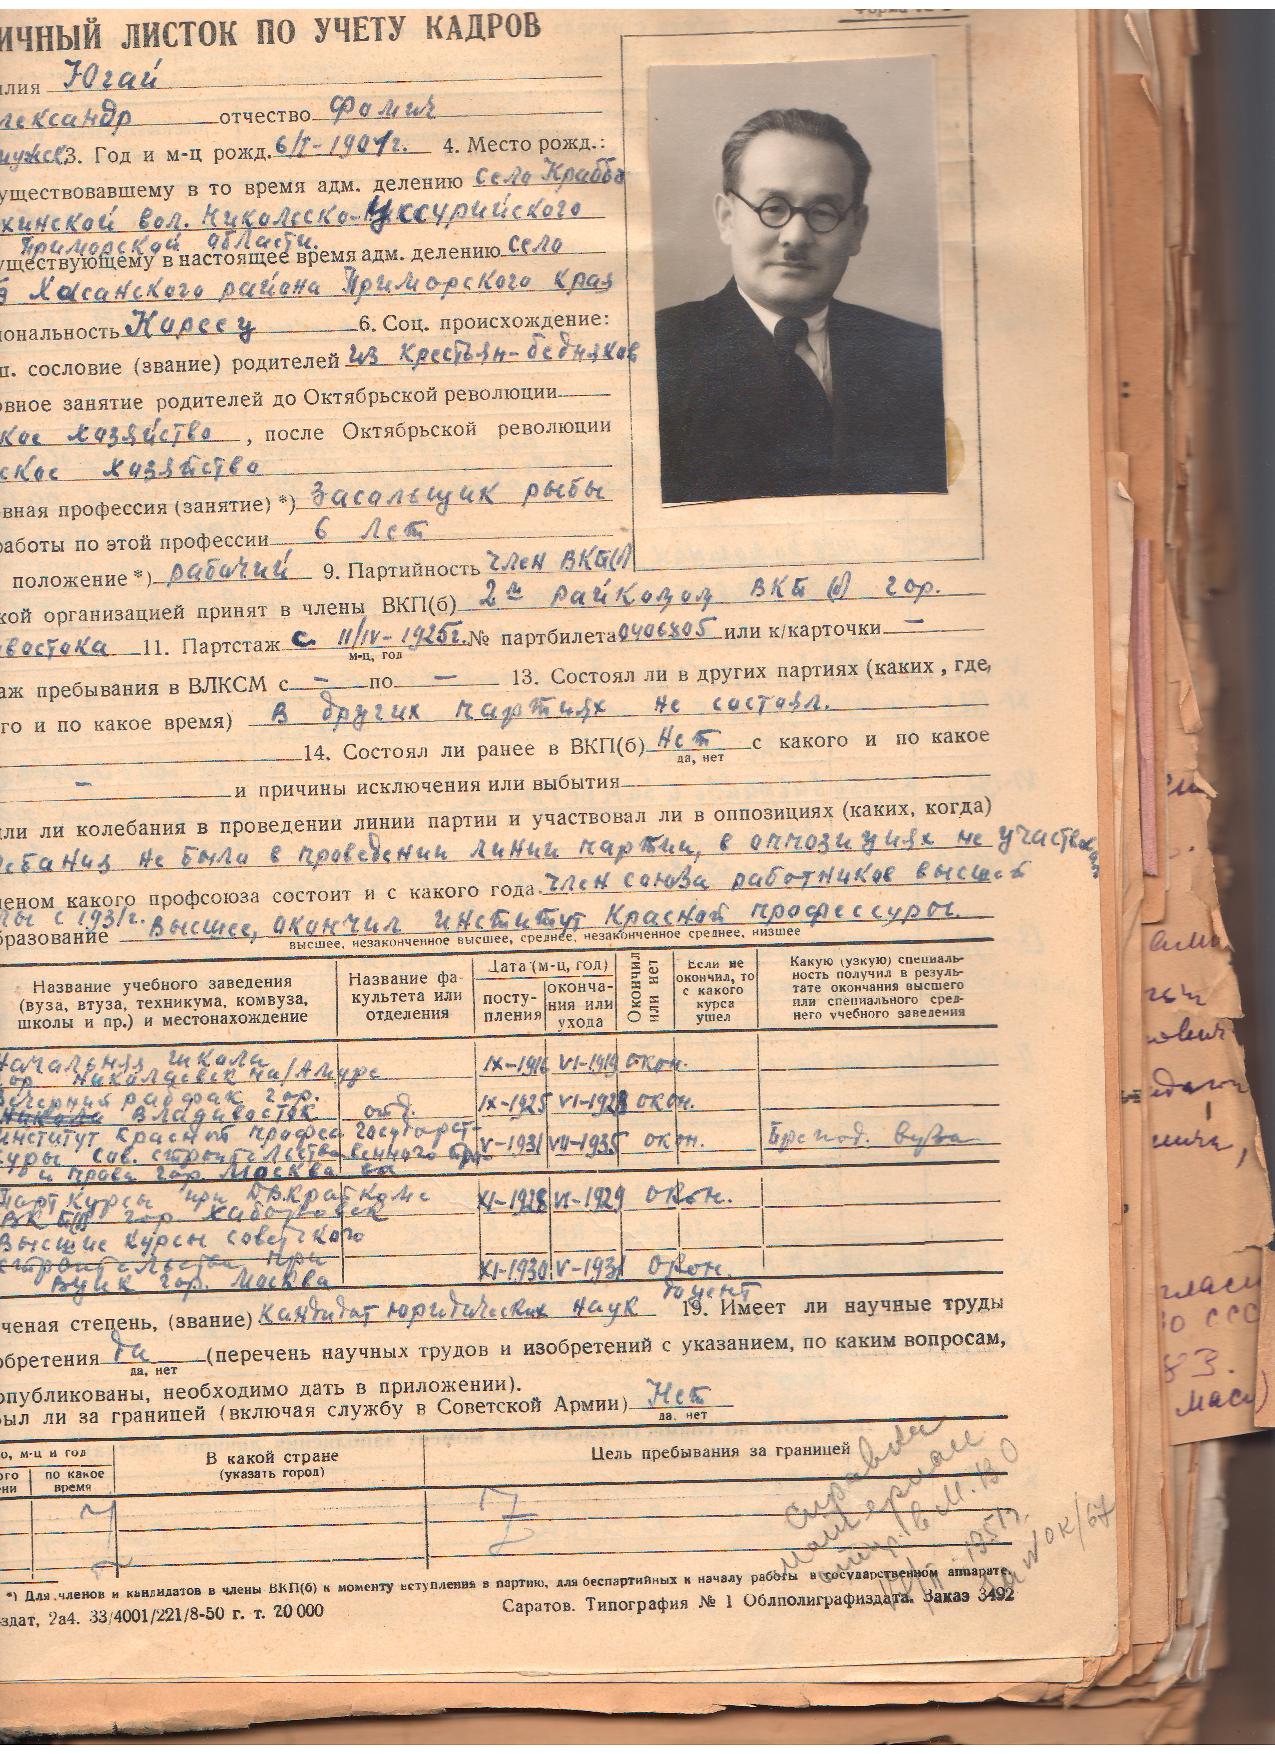 ИЧНЫЙ ЛИСТОК ПО УЧЕТУ КАДРОВ
илия Югай
лександр отчество Фомич
мужск 3. Год и м-ц рожд. 6/I-1904г. 4. Место рожд.:
уществовавшему в то время адм. делению село Краббэ
кинской вол. Никольско-Уссурийского
Приморской области.
уществующему в настоящее время адм. делению село
Хасанского района Приморского края
иональность Кореец 6. Соц. происхождение:
п. сословие (звание) родителей из крестьян-бедняков
овное занятие родителей до Октябрьской революции
кое хозяйство , после Октябрьской революции
ское хозяйство
вная профессия (занятие) *) Засальщик рыбы
работы по этой профессии 6 лет
положение *) рабочий 9. Партийность член ВКП(б)
кой организацией принят в члены ВКП(б) 2м райкомом ВКП(б) гор.
ивостока 11. Партстаж с II/IV-1925г. № партбилета 0406805 или к/карточки —
м-ц, год
аж пребывания в ВЛКСМ с — по — 13. Состоял ли в других партиях (каких, где,
го и по какое время) В других партиях не состоял.
14. Состоял ли ранее в ВКП(б) Нет с какого и по какое
да, нет
— и причины исключения или выбытия
ли ли колебания в проведении линии партии и участвовал ли в оппозициях (каких, когда)
лебания не было в проведении линии партии, в оппозициях не участвовал
леном какого профсоюза состоит и с какого года. Член союза работников высшей
лы с 1931г.
бразование Высшее, окончил институт Красной профессуры.
высшее, незаконченное высшее, среднее, незаконченное среднее, низшее
Название учебного заведения (вуза, втуза, техникума, комвуза, школы и пр.) и местонахождение
Название факультета или отделения
Дата (м-ц, год)
поступления
окончания или ухода
Окончил или нет
Если не окончил, то с какого курса ушел
Какую (узкую) специальность получил в результате окончания высшего или специального среднего учебного заведения
Начальная школа
гор. Николаевск на/Амуре IX-1916 VI-1919 окон.
Вечерний рабфак гор.
Владивосток отд. IX-1925 VI-1928 окон.
Институт Красной профес государст-
суры сов. строительства венного V-1931 VII-1935 окон. Препод. вуза
и права гор. Москва
Парт курсы при ДВКрайкоме
ВКП(б) гор. Хабаровск XI-1928 VI-1929 окон.
Высшие курсы советского
строительства при
ВЦИК гор. Москва XI-1930 V-1931 окон.
ченая степень, (звание) Кандидат юридических наук доцент 19. Имеет ли научные труды
обретения да (перечень научных трудов и изобретений с указанием, по каким вопросам,
да, нет
опубликованы, необходимо дать в приложении).
был ли за границей (включая службу в Советской Армии) Нет
да, нет
о, м-ц и год
ого
ени
по какое время
В какой стране
(указать город)
Цель пребывания за границей
*) Для членов и кандидатов в члены ВКП(б) к моменту вступления в партию, для беспартийных к началу работы в государственном аппарате.
здат, 2а4. 33/4001/221/8-50 г. т. 20 000 Саратов. Типография № 1 Облполиграфиздата. Заказ 3492